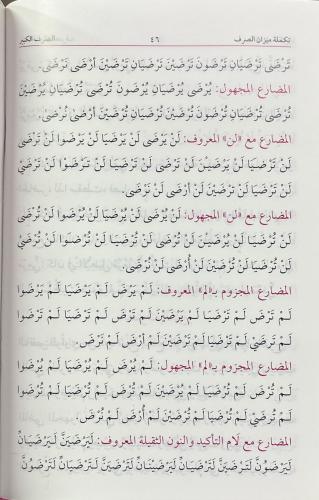 تكملة ميزان الصرف ٤٦ الصرف الكبير
تَرْضَى تَرْضَيَانِ تَرْضَوْنَ تَرْضَيْنَ تَرْضَيَانِ تَرْضَيْنَ أَرْضَى نَرْضَى.
المضارع المجهول: يُرْضَى يُرْضَيَانِ يُرْضَوْنَ تُرْضَى تُرْضَيَانِ يُرْضَيْنَ
تُرْضَى تُرْضَيَانِ تُرْضَوْنَ تُرْضَيْنَ تُرْضَيَانِ تُرْضَيْنَ أُرْضَى نُرْضَى.
المضارع مع «لن» المعروف: لَنْ يَرْضَى لَنْ يَرْضَيَا لَنْ يَرْضَوْا لَنْ تَرْضَى
لَنْ تَرْضَيَا لَنْ يَرْضَيْنَ لَنْ تَرْضَى لَنْ تَرْضَيَا لَنْ تَرْضَوْا لَنْ تَرْضَيْ
لَنْ تَرْضَيَا لَنْ تَرْضَيْنَ لَنْ أَرْضَى لَنْ نَرْضَى.
المضارع مع «لن» المجهول: لَنْ يُرْضَى لَنْ يُرْضَيَا لَنْ يُرْضَوْا لَنْ تُرْضَى
لَنْ تُرْضَيَا لَنْ يُرْضَيْنَ لَنْ تُرْضَى لَنْ تُرْضَيَا لَنْ تُرْضَوْا لَنْ تُرْضَيْ
لَنْ تُرْضَيَا لَنْ تُرْضَيْنَ لَنْ أُرْضَى لَنْ نُرْضَى.
المضارع المجزوم بـ«لم» المعروف: لَمْ يَرْضَ لَمْ يَرْضَيَا لَمْ يَرْضَوْا
لَمْ تَرْضَ لَمْ تَرْضَيَا لَمْ يَرْضَيْنَ لَمْ تَرْضَ لَمْ تَرْضَيَا لَمْ تَرْضَوْا
لَمْ تَرْضَيْ لَمْ تَرْضَيَا لَمْ تَرْضَيْنَ لَمْ أَرْضَ لَمْ نَرْضَ.
المضارع المجزوم بـ«لم» المجهول: لَمْ يُرْضَ لَمْ يُرْضَيَا لَمْ يُرْضَوْا
لَمْ تُرْضَ لَمْ تُرْضَيَا لَمْ يُرْضَيْنَ لَمْ تُرْضَ لَمْ تُرْضَيَا لَمْ تُرْضَوْا
لَمْ تُرْضَيْ لَمْ تُرْضَيَا لَمْ تُرْضَيْنَ لَمْ أُرْضَ لَمْ نُرْضَ.
المضارع مع لام التأكيد والنون الثقيلة المعروف: لَيَرْضَيَنَّ لَيَرْضَيَانِّ
لَيَرْضَوُنَّ لَتَرْضَيَنَّ لَتَرْضَيَانِّ لَيَرْضَيْنَانِّ لَتَرْضَيَنَّ لَتَرْضَيَانِّ لَتَرْضَوُنَّ